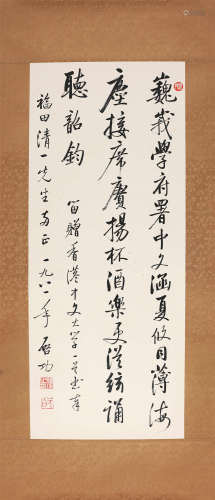 巍峩學府署中文涵夏攸同薄海
塵接席賡揚杯酒樂更從絃誦
聽韶鈞
留贈香港中文大學一首書奉
福田清一先生両正一九八一年啓功